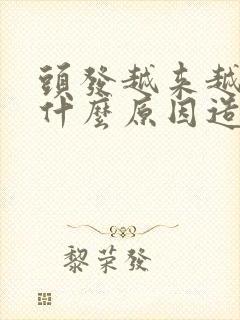 頭發越来越
什麼原因造
黎荣發